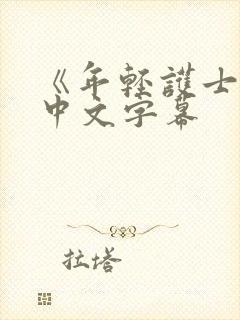 《年轻護士
中文字幕
拉塔